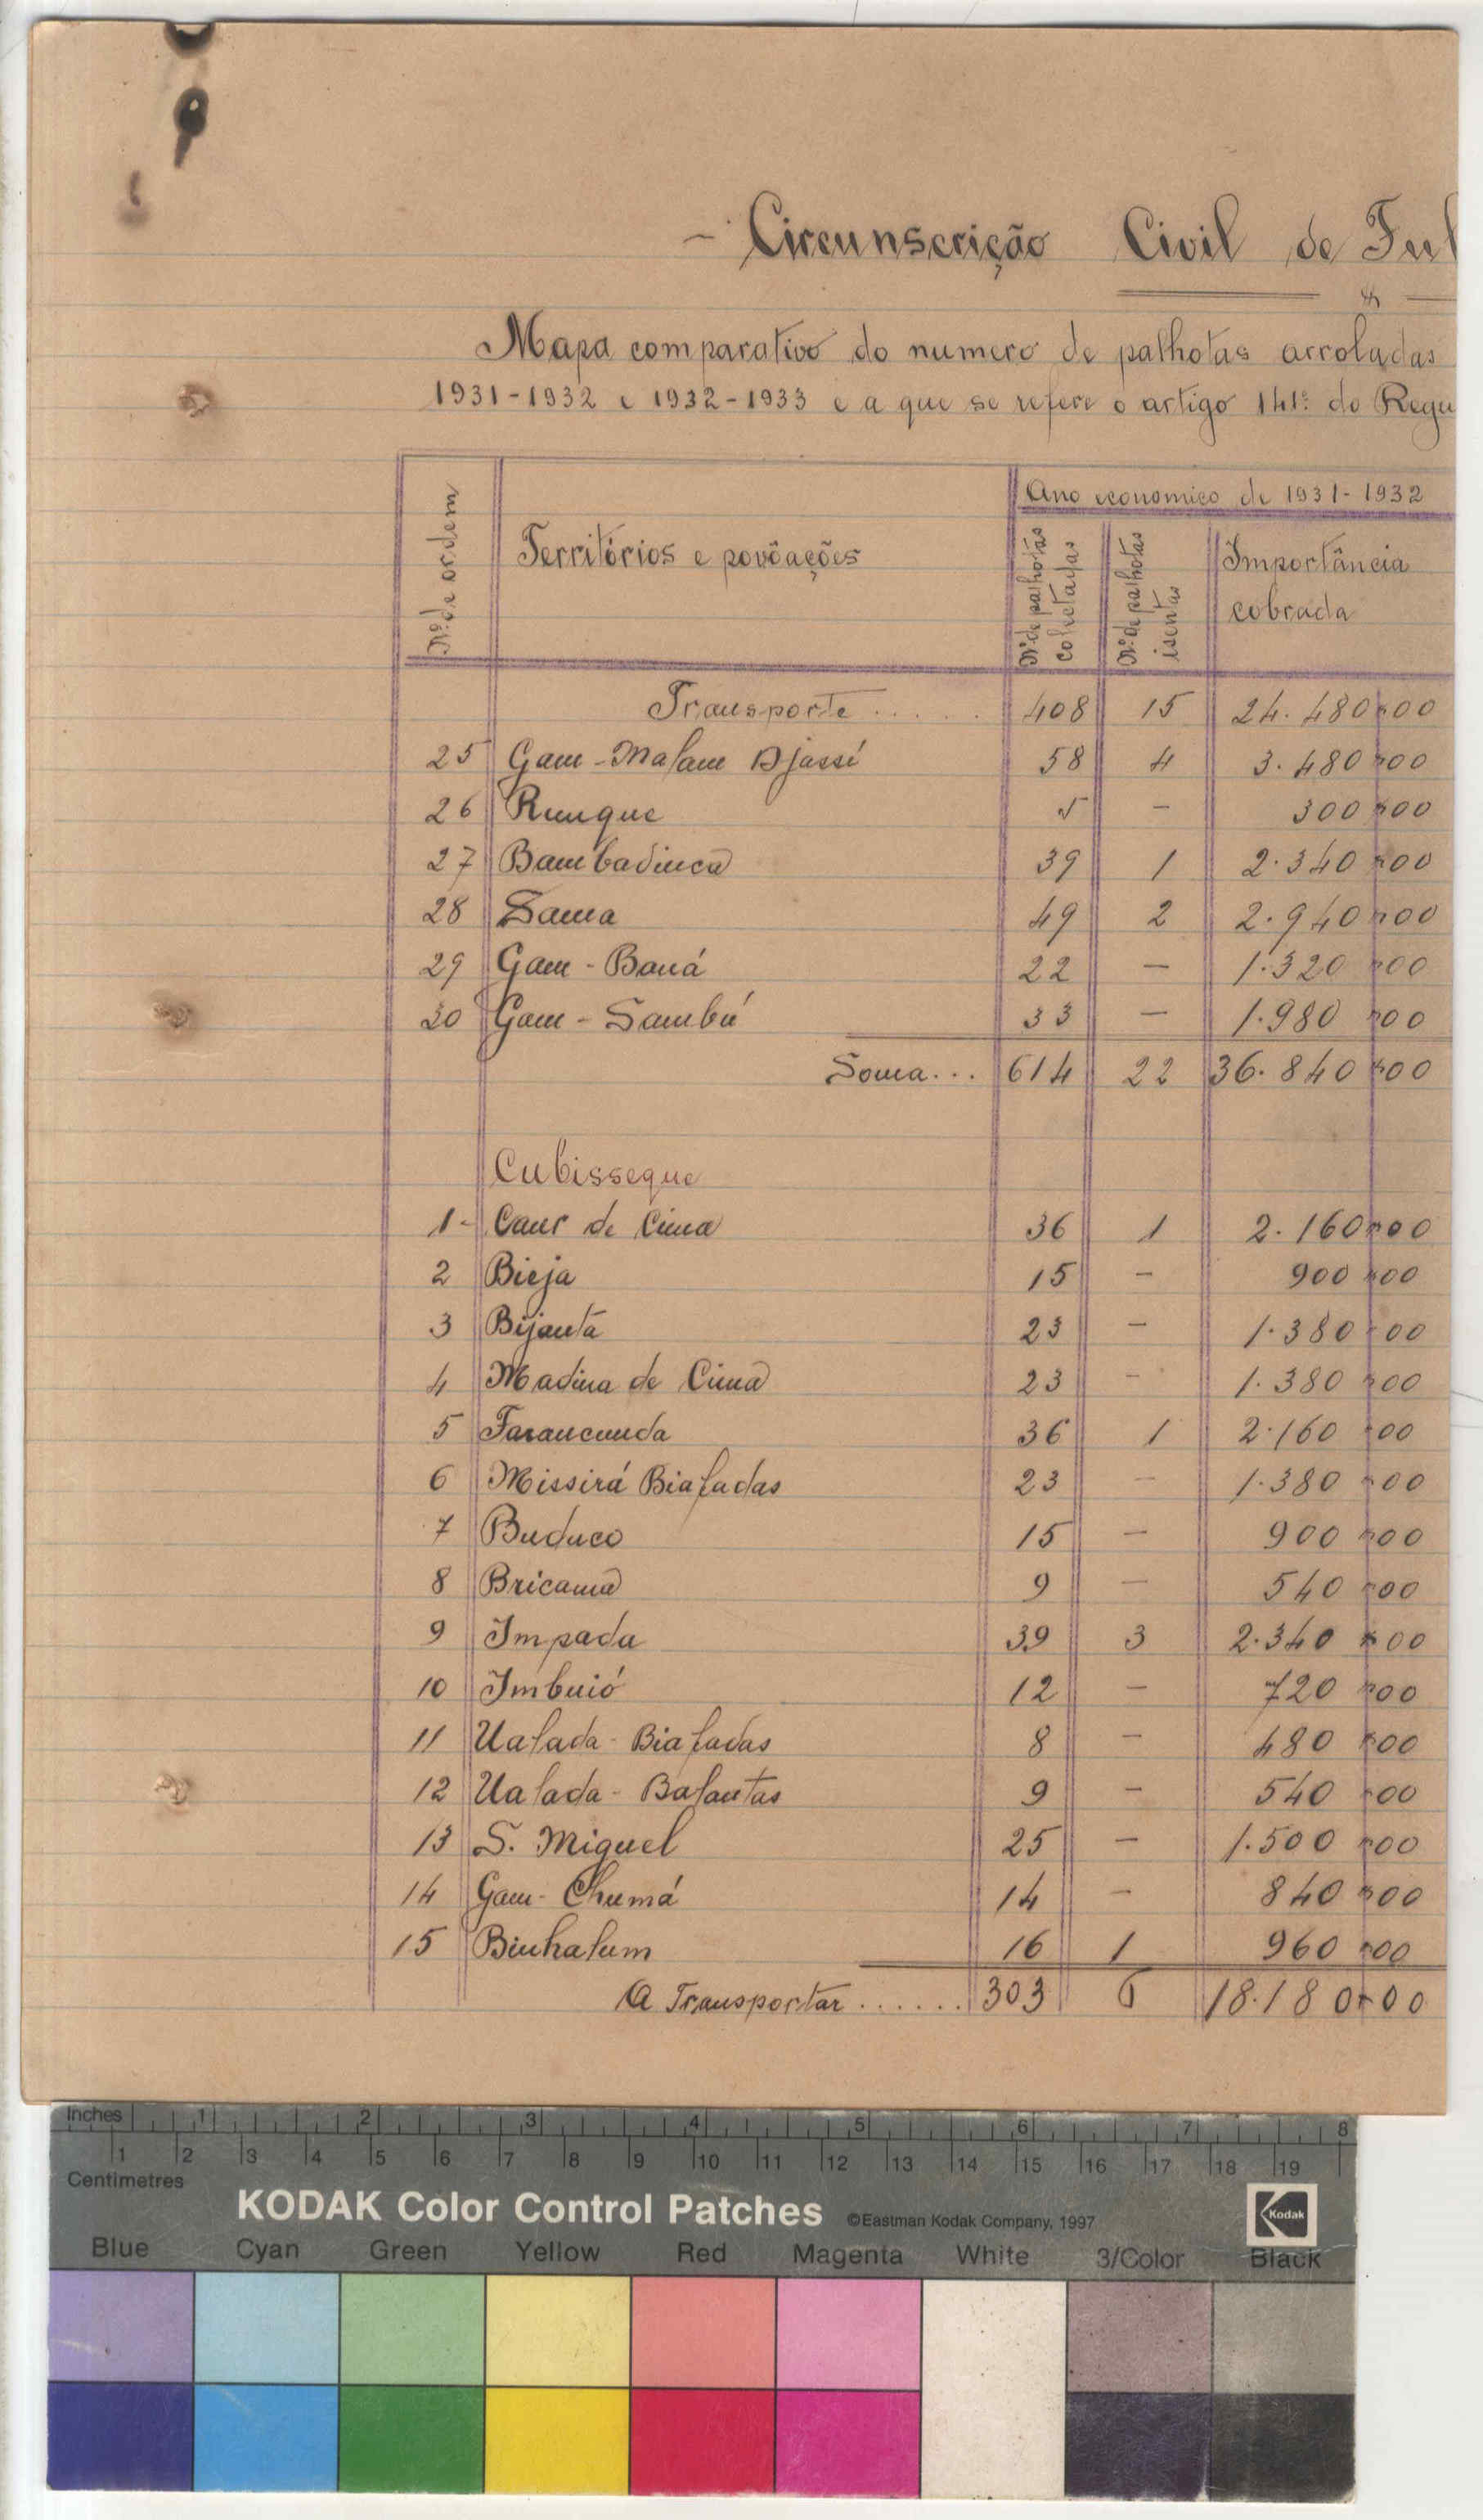 - Circunscrição Civil de Ful
Mapa comparativo do numero de palhotas arroladas
1931-1932 e 1932-1933 e a que se refere o artigo 141º do Regu
Nº de ordem
Territórios e povôações
Ano economico de 1931-1932
Nº de palhotas colectadas
Nº de palhotas isentas
Importância cobrada
Transporte ..... 408 15 24.480$00
25 Gam-Malam Djassí 58 4 3.480$00
26 Runque 5 - 300$00
27 Bambadinca 39 1 2.340$00
28 Sama 49 2 2.940$00
29 Gam-Baná 22 - 1.320$00
30 Gam-Sambú 33 - 1.980$00
Soma... 614 22 36.840$00
Cubisseque
1- Caur de Cima 36 1 2.160$00
2 Bieja 15 - 900$00
3 Bijanta 23 - 1.380$00
4 Madina de Cima 23 - 1.380$00
5 Farancunda 36 1 2.160$00
6 Missirá Biafadas 23 - 1.380$00
7 Buduco 15 - 900$00
8 Bricama 9 - 540$00
9 Impada 39 3 2.340$00
10 Imbuió 12 - 720$00
11 Ualada-Biafadas 8 - 480$00
12 Ualada-Balantas 9 - 540$00
13 S. Miguel 25 - 1.500$00
14 Gam-Chumá 14 - 840$00
15 Binhalum 16 1 960$00
A Transportar ...... 303 6 18.180$00
Inches 1 2 3 4 5 6 7 8
1 2 3 4 5 6 7 8 9 10 11 12 13 14 15 16 17 18 19
Centimetres
KODAK Color Control Patches ©Eastman Kodak Company, 1997 Kodak
Blue Cyan Green Yellow Red Magenta White 3/Color Black